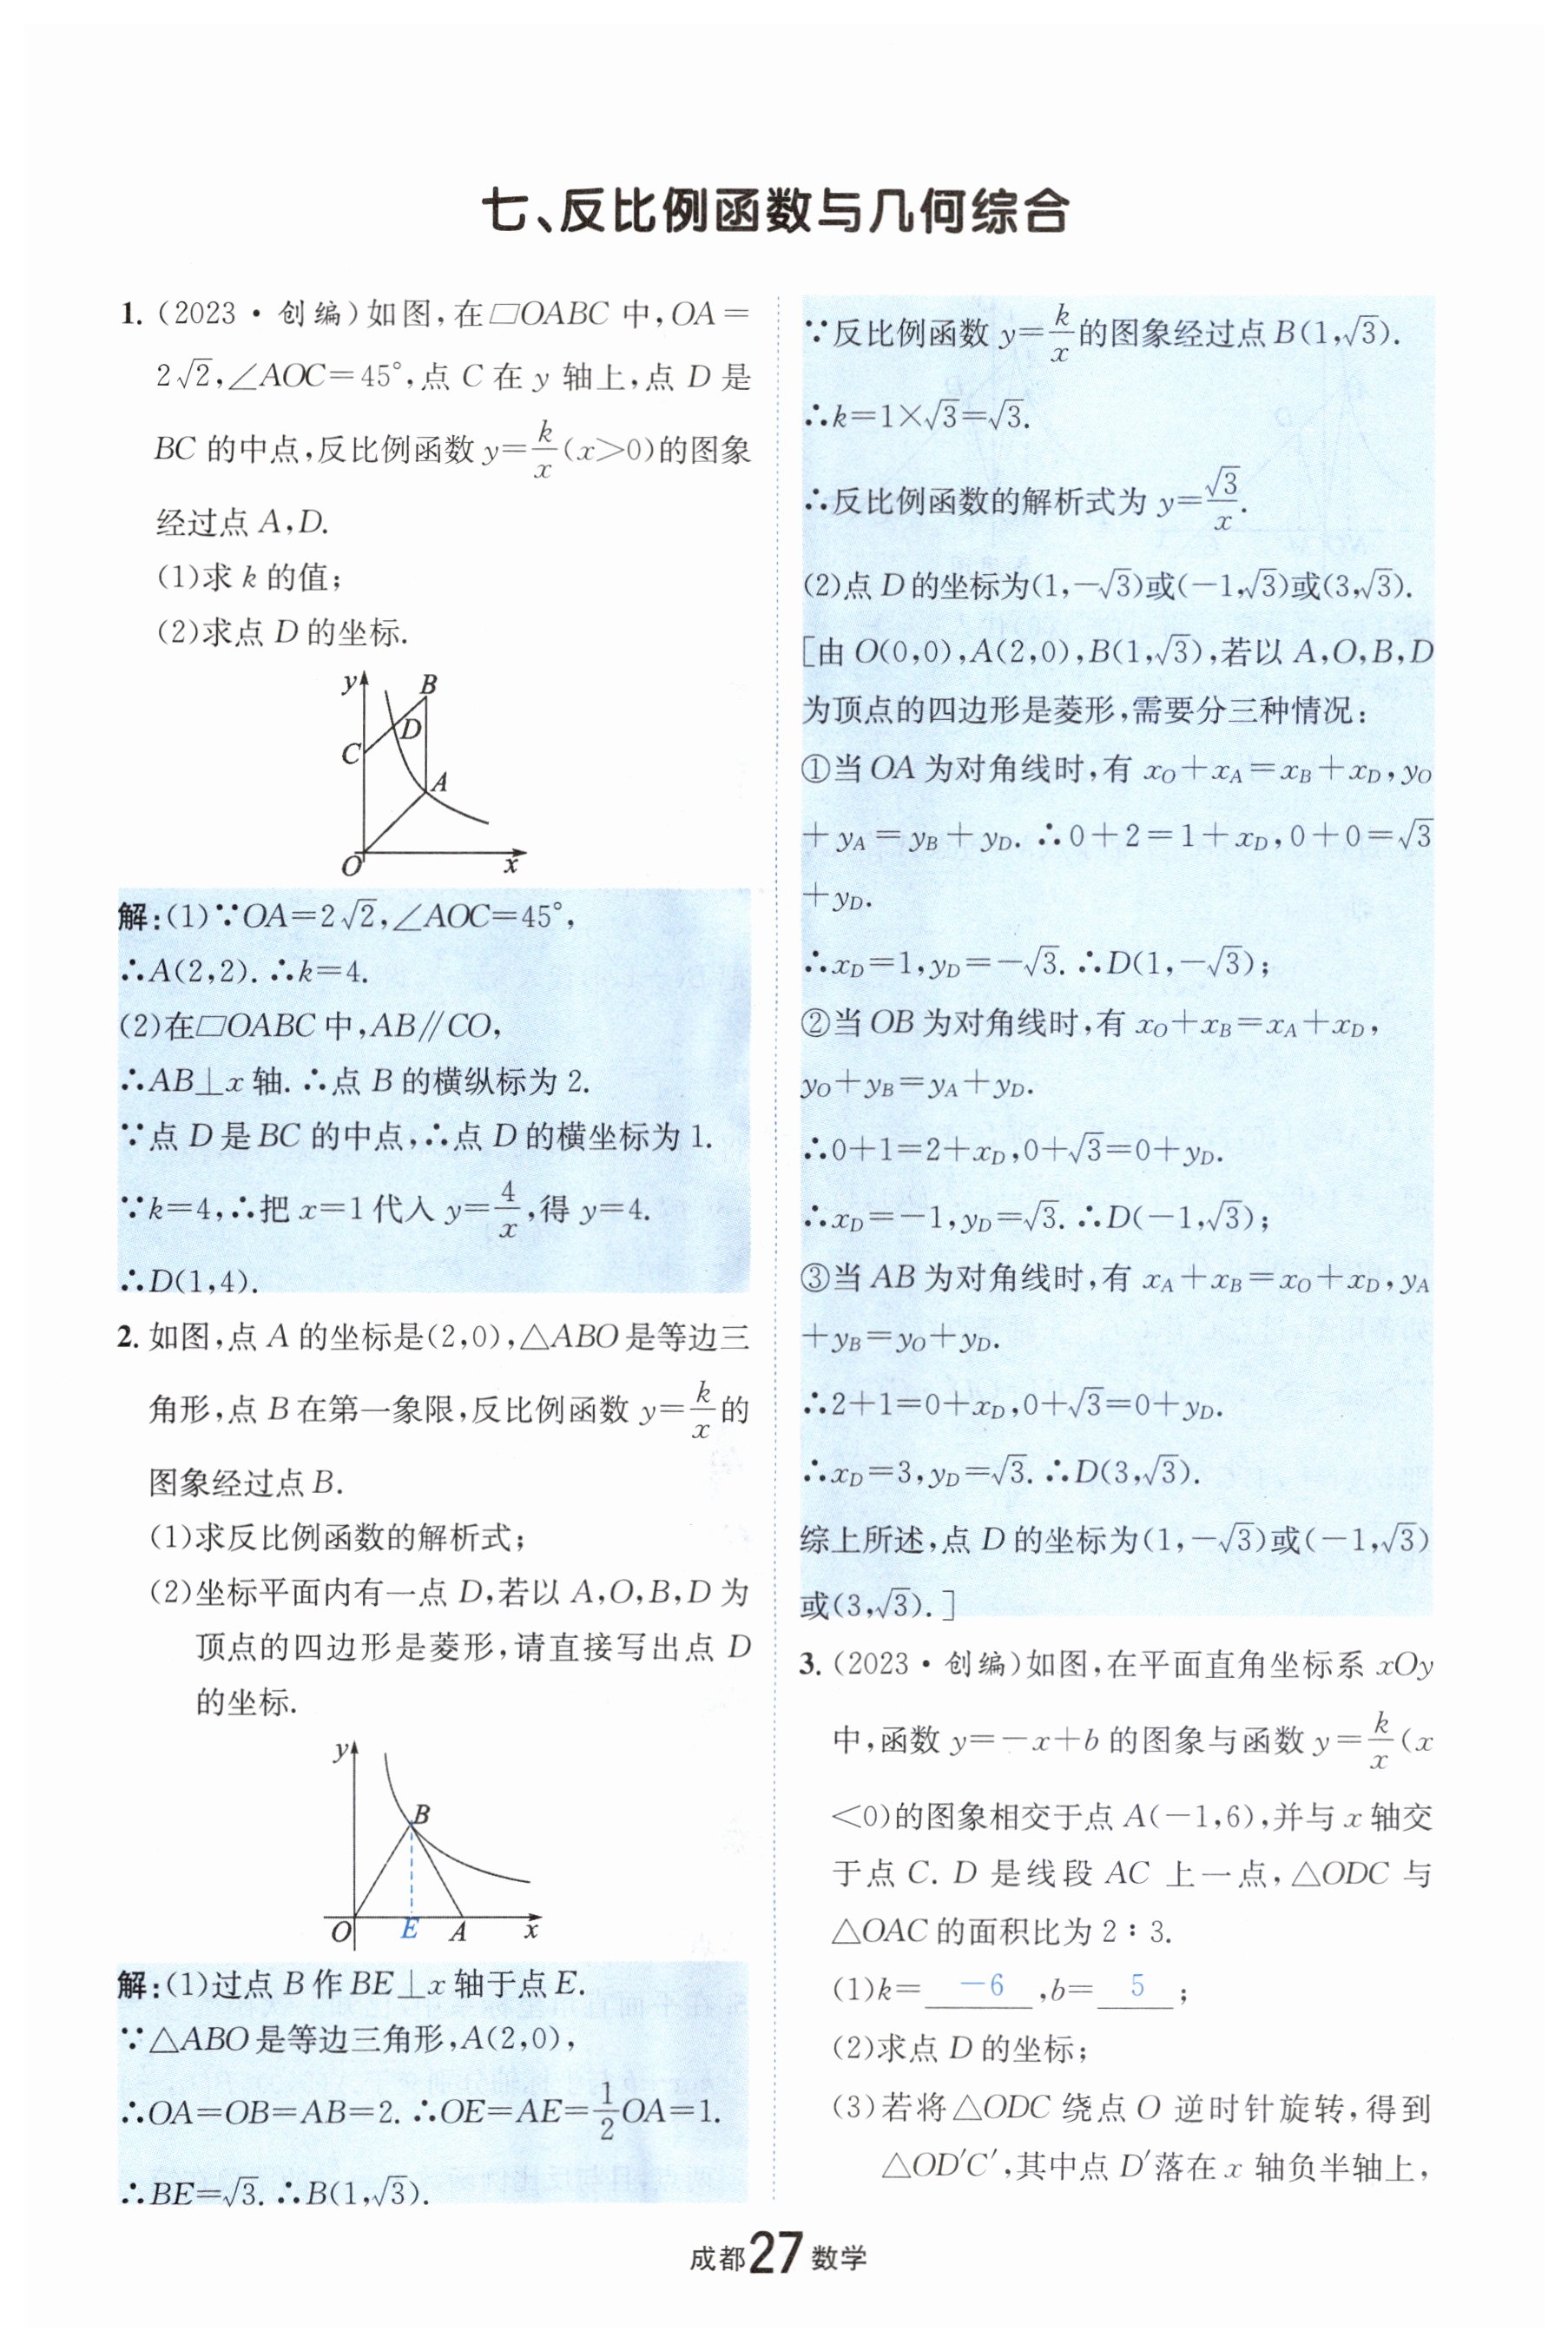 七、反比例函数与几何综合
1. (2023·创编)如图,在▱OABC 中,OA=
2√2,∠AOC=45°,点 C 在 y 轴上,点 D 是
BC 的中点,反比例函数 y=k/x(x>0)的图象
经过点 A,D.
(1)求 k 的值;
(2)求点 D 的坐标.
y
B
D
C
A
O
x
解:(1)∵OA=2√2,∠AOC=45°,
∴A(2,2). ∴k=4.
(2)在▱OABC 中,AB∥CO,
∴AB⊥x 轴. ∴点 B 的横纵标为 2.
∵点 D 是 BC 的中点,∴点 D 的横坐标为 1.
∵k=4,∴把 x=1 代入 y=4/x,得 y=4.
∴D(1,4).
2. 如图,点 A 的坐标是(2,0),△ABO 是等边三
角形,点 B 在第一象限,反比例函数 y=k/x 的
图象经过点 B.
(1)求反比例函数的解析式;
(2)坐标平面内有一点 D,若以 A,O,B,D 为
顶点的四边形是菱形,请直接写出点 D
的坐标.
y
B
O
E
A
x
解:(1)过点 B 作 BE⊥x 轴于点 E.
∵△ABO 是等边三角形,A(2,0),
∴OA=OB=AB=2. ∴OE=AE=1/2OA=1.
∴BE=√3. ∴B(1,√3).
∵反比例函数 y=k/x 的图象经过点 B(1,√3).
∴k=1×√3=√3.
∴反比例函数的解析式为 y=√3/x.
(2)点 D 的坐标为(1,-√3)或(-1,√3)或(3,√3).
[由 O(0,0),A(2,0),B(1,√3),若以 A,O,B,D
为顶点的四边形是菱形,需要分三种情况:
①当 OA 为对角线时,有 x_O+x_A=x_B+x_D,y_O
+y_A=y_B+y_D. ∴0+2=1+x_D,0+0=√3
+y_D.
∴x_D=1,y_D=-√3. ∴D(1,-√3);
②当 OB 为对角线时,有 x_O+x_B=x_A+x_D,
y_O+y_B=y_A+y_D.
∴0+1=2+x_D,0+√3=0+y_D.
∴x_D=-1,y_D=√3. ∴D(-1,√3);
③当 AB 为对角线时,有 x_A+x_B=x_O+x_D,y_A
+y_B=y_O+y_D.
∴2+1=0+x_D,0+√3=0+y_D.
∴x_D=3,y_D=√3. ∴D(3,√3).
综上所述,点 D 的坐标为(1,-√3)或(-1,√3)
或(3,√3).]
3. (2023·创编)如图,在平面直角坐标系 xOy
中,函数 y=-x+b 的图象与函数 y=k/x(x
<0)的图象相交于点 A(-1,6),并与 x 轴交
于点 C. D 是线段 AC 上一点,△ODC 与
△OAC 的面积比为 2∶3.
(1)k= -6 ,b= 5 ;
(2)求点 D 的坐标;
(3)若将△ODC 绕点 O 逆时针旋转,得到
△OD′C′,其中点 D′落在 x 轴负半轴上,
成都27数学